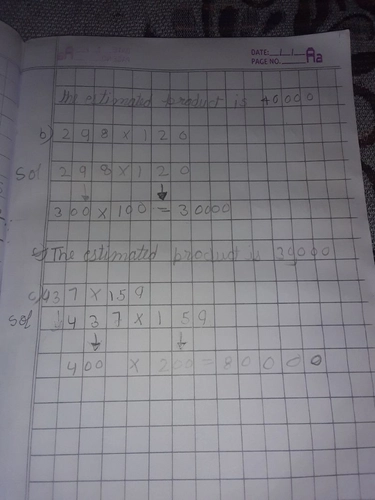 DATE: / / Aa
PAGE NO.
The estimated product is 40000
b) 298 x 120
Sol 298 x 120
300 x 100 = 30000
The estimated product is 30000
c) 437 x 159
Sol 437 x 159
400 x 200 = 80000